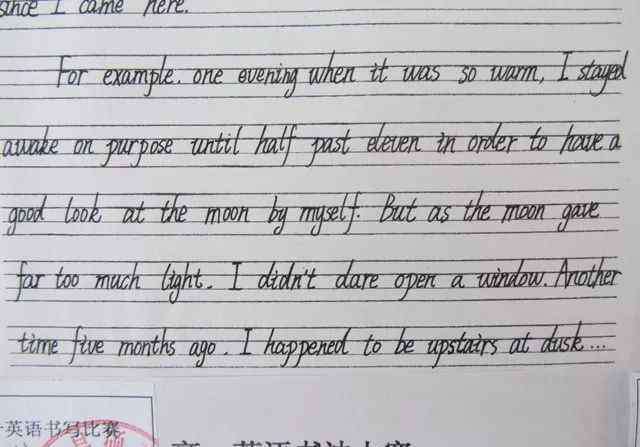 since I came here.
For example. one evening when it was so warm, I stayed
awake on purpose until half past eleven in order to have a
good look at the moon by myself. But as the moon gave
far too much light. I didn't dare open a window. Another
time five months ago. I happened to be upstairs at dusk...
英语书写比赛